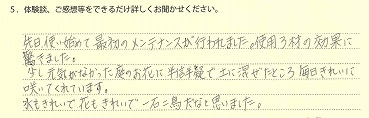 5．体験談、ご感想等をできるだけ詳しくお聞かせください。
先日使い始めて最初のメンテナンスが行われました。使用ろ材の効果に
驚きました。
少し元気がなかった庭のお花に半信半疑で土に混ぜたところ毎日きれいに
咲いてくれています。
水もきれいで花もきれいで一石二鳥だなと思いました。